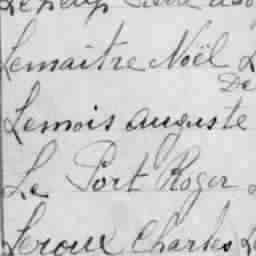 Lemaitre Noël
De
Lemois auguste
Le Port Roger
Leroux Charles